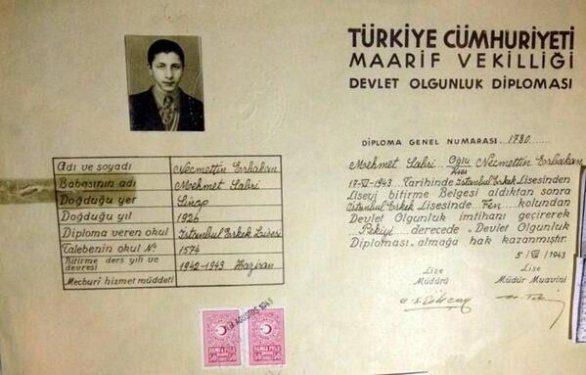 TÜRKİYE CÜMHURİYETİ
MAARİF VEKİLLİĞİ
DEVLET OLGUNLUK DİPLOMASI
DİPLOMA GENEL NUMARASI. 1730
Mehmet Sabri Oğlu Necmettin Erbakan
Kızı
17-VI-1943 Tarihinde İstanbul Erkek Lisesinden
Liseyi bitirme Belgesi aldıktan sonra
İstanbul Erkek Lisesinde Fen kolundan
Devlet Olgunluk imtihanı geçirerek
Pekiyi derecede Devlet Olgunluk
Diploması almağa hak kazanmıştır.
5/VII/1943
Lise Lise
Müdürü Müdür Muavini
Adı ve soyadı Necmettin Erbakan
Babasının adı Mehmet Sabri
Doğduğu yer Sinop
Doğduğu yıl 1926
Diploma veren okul İstanbul Erkek Lisesi
Talebenin okul № 1574
Bitirme ders yılı ve devresi 1942-1943 Haziran
Mecburî hizmet müddeti